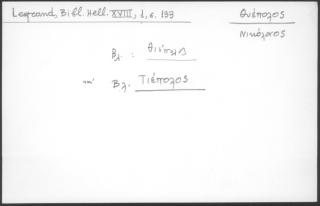 Legrand, Bibl. Hell. XVIII, 1, σ. 193
Θυέπολος
Νικόλαος
Βλ. :
και Βλ. Τιέπολος